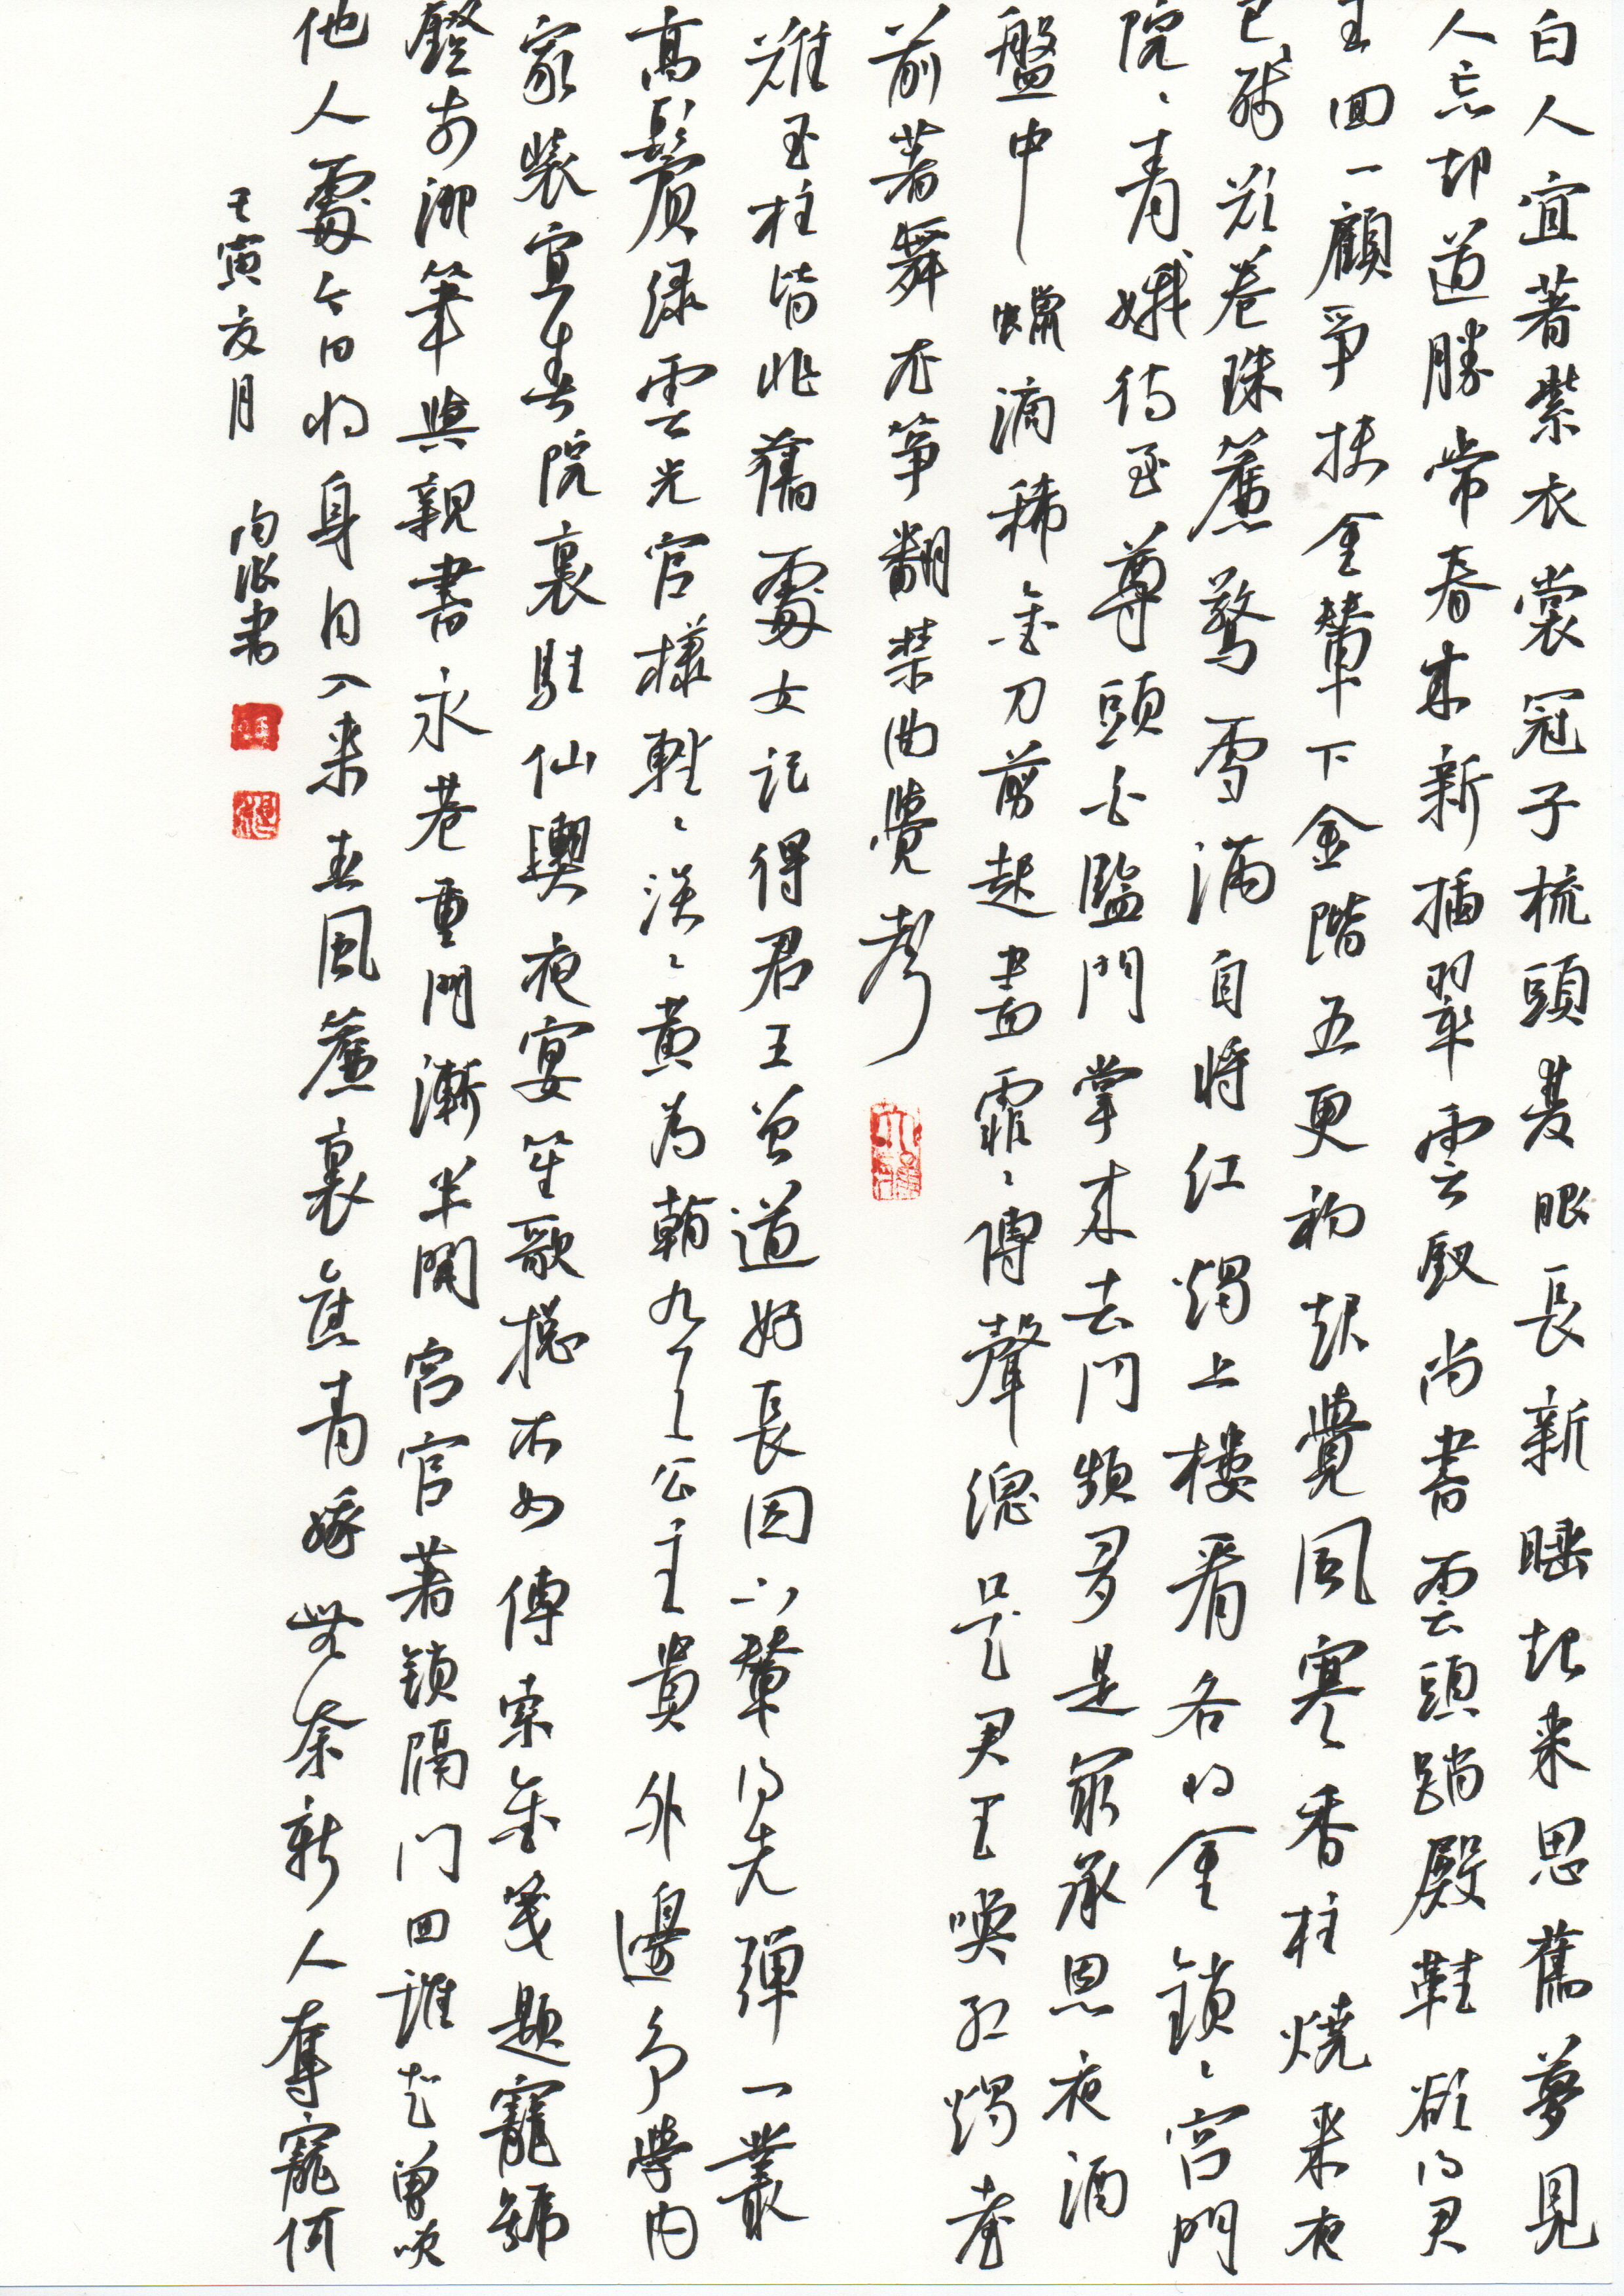 白人宜著紫衣裳冠子梳頭雙眼長新睡起來思舊夢見
人忘却道勝常春來新插翠雲釵尚書雲頭踏殿鞋欲得君
王回一顧爭扶金輦下金階五更初起覺風寒香柱燒來夜
已殘欲卷珠簾驚雪滿自將紅燭上樓看各將金鎖鎖宮門
院院青娥侍至尊頭白監門掌來去門頻多是最承恩夜酒
盤中蠟滴稀金刀剪起盡霏霏傳聲總是君王喚紅燭臺
前著舞衣筝翻禁曲覺聲
難玉柱皆非舊處安記得君王曾道好長因下輦得先彈一叢
高鬢綠雲光官樣輕輕淡淡黃為看九天公主貴外邊爭學內
家裝宜春院裏駐仙輿夜宴笙歌總不如傳索金箋題寵號
燈前御筆與親書永巷重門漸半開宮官著鎖隔門回誰知曾笑
他人處今日將身自入來春風簾裏舊青娥無奈新人奪寵何
壬寅友月 書